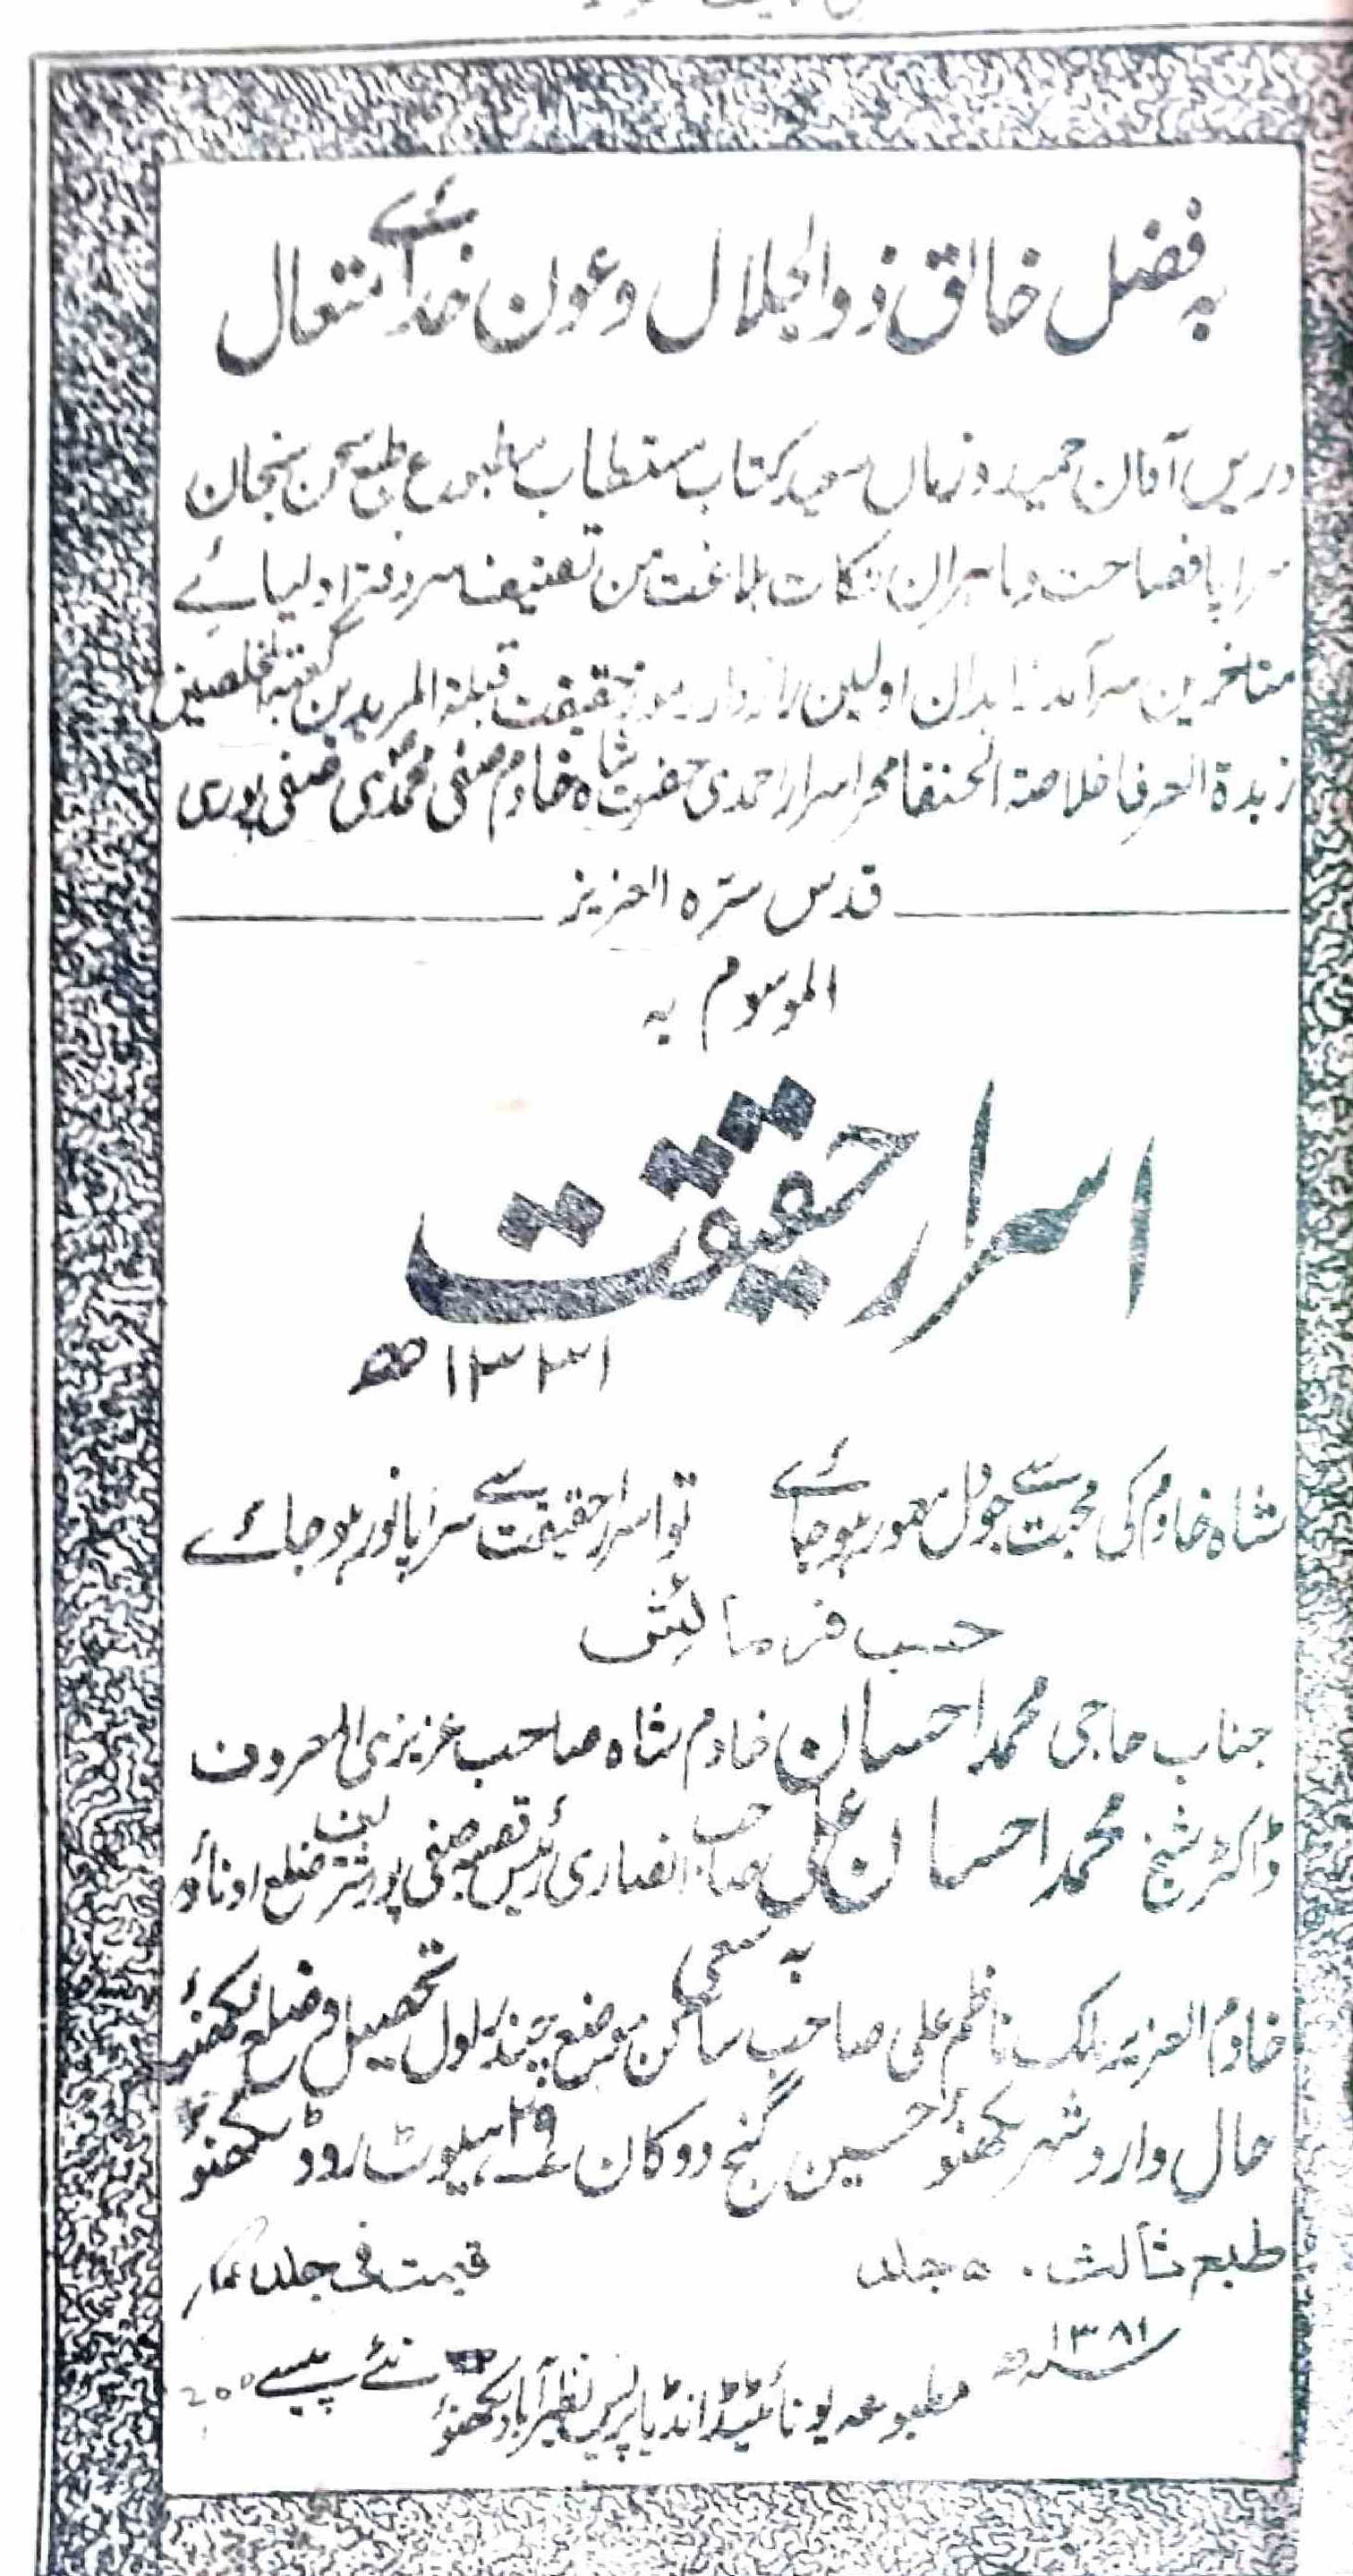 بہ فضل خالق ذوالجلال و عون خدائے متعال
دریں آوان حمید و زماں سعید کتاب مستطاب مطبوع طبع سخن سنجان
سراپا فصاحت و ماہران نکات بلاغت من تصنیف سردفتر اولیائے
متاخرین سرآمد زاہدان اولین رازدار رموز حقیقت قبلۃ المریدین کعبۃ المخلصین
زبدۃ العرفا خلاصۃ الحنفا محرم اسرار احمدی حضرت شاہ خادم صفی محمدی صفی پوری
قدس سرّہ العزیز
الموسوم بہ
اسرار حقیقت
۱۳۳۱ھ
شاہ خادم کی محبت سے جو دل معمور ہو جائے تو اسرار حقیقت سے سراپا نور ہو جائے
حسب فرمائش
جناب حاجی محمد احسان خادم شاہ صاحب عزیزی المعروف
ڈاکٹر شیخ محمد احسان علی صاحب انصاری رئیس قصبہ صفی پور شریف ضلع اوناؤ
بہ سعی
خادم العزیز ملک ناظم علی صاحب ساکن موضع چندکول تحصیل و ضلع لکھنؤ
حال وارد شہر لکھنؤ حسین گنج دوکان ۲۹ ہیلوٹ روڈ لکھنؤ
طبع ثالث ۵۰۰ جلد قیمت فی جلد
۱۳۸۱ھ
مطبوعہ یونائیٹڈ انڈیا پریس نظیرآباد لکھنؤ نئے پیسے 200